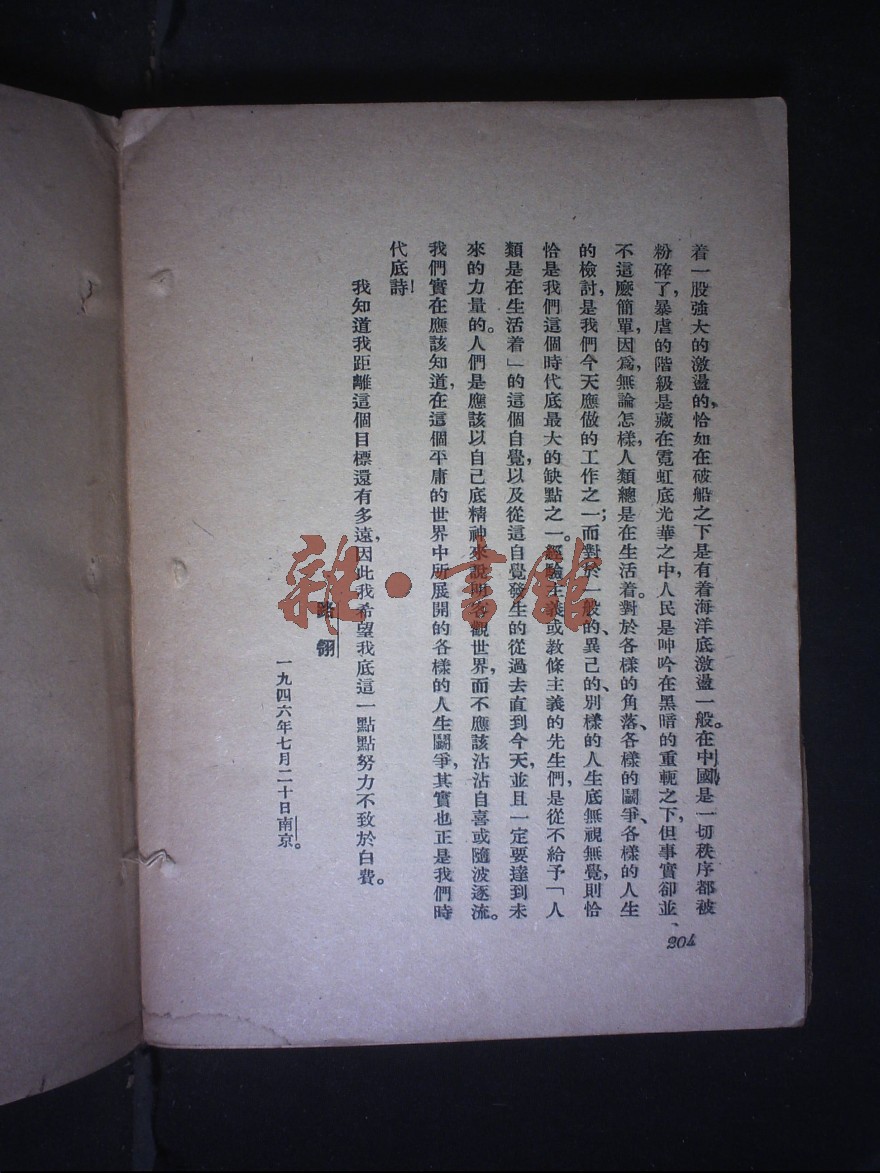 着一股強大的激盪的，恰如在破船之下是有着海洋底激盪一般。在中國是一切秩序都被
粉碎了，暴虐的階級是藏在霓虹底光華之中，人民是呻吟在黑暗的重軛之下，但事實卻並
不這麼簡單，因爲，無論怎樣，人類總是在生活着。對於各樣的角落、各樣的鬭爭、各樣的人生
的檢討，是我們今天應做的工作之一；而對於一般的、異己的、別樣的人生底無視無覺，則恰
恰是我們這個時代底最大的缺點之一。經驗主義或教條主義的先生們，是從不給予「人
類是在生活着」的這個自覺，以及從這自覺發生的從過去直到今天，並且一定要達到未
來的力量的。人們是應該以自己底精神來說明客觀世界，而不應該沾沾自喜或隨波逐流。
我們實在應該知道，在這個平庸的世界中所展開的各樣的人生鬭爭，其實也正是我們時
代底詩！
我知道我距離這個目標還有多遠，因此我希望我底這一點點努力不致於白費。
路翎
一九四六年七月二十日南京。
204
雜·書館